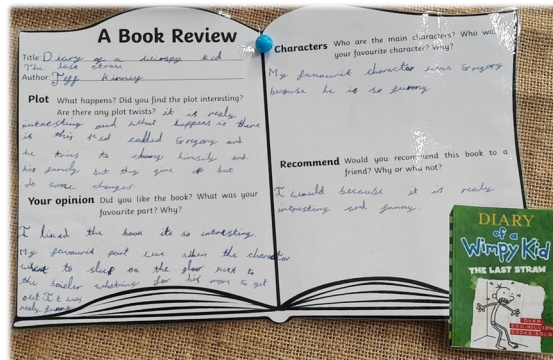 A Book Review
Title Diary of a Wimpy kid
The last straw
Author Jeff Kinney
Plot What happens? Did you find the plot interesting?
Are there any plot twists? it is realy
intresting and what happens is there
is this kid called Gregory and
he tries to chang himself and
his family but they give up but
do some changes
Your opinion Did you like the book? What was your
favourite part? Why?
I liked the book its so intresting.
My favourit part was when the character
went to sleep on the floor next to
the boiler whating for his mom to get
out It was
realy funny
Characters Who are the main characters? Who was
your favourite character? Why?
My favourit character was Gregory
because he is so funny
Recommend Would you recommend this book to a
friend? Why or why not?
I would because it is realy
intresting and funny.
DIARY
of a
Wimpy Kid
THE LAST STRAW